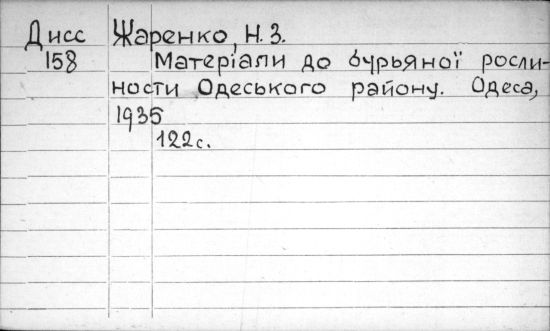 Дисс Жаренко, Н. З.
158 Матеріали до бурьяної росли-
ности Одеського району. Одеса,
1935
122 с.